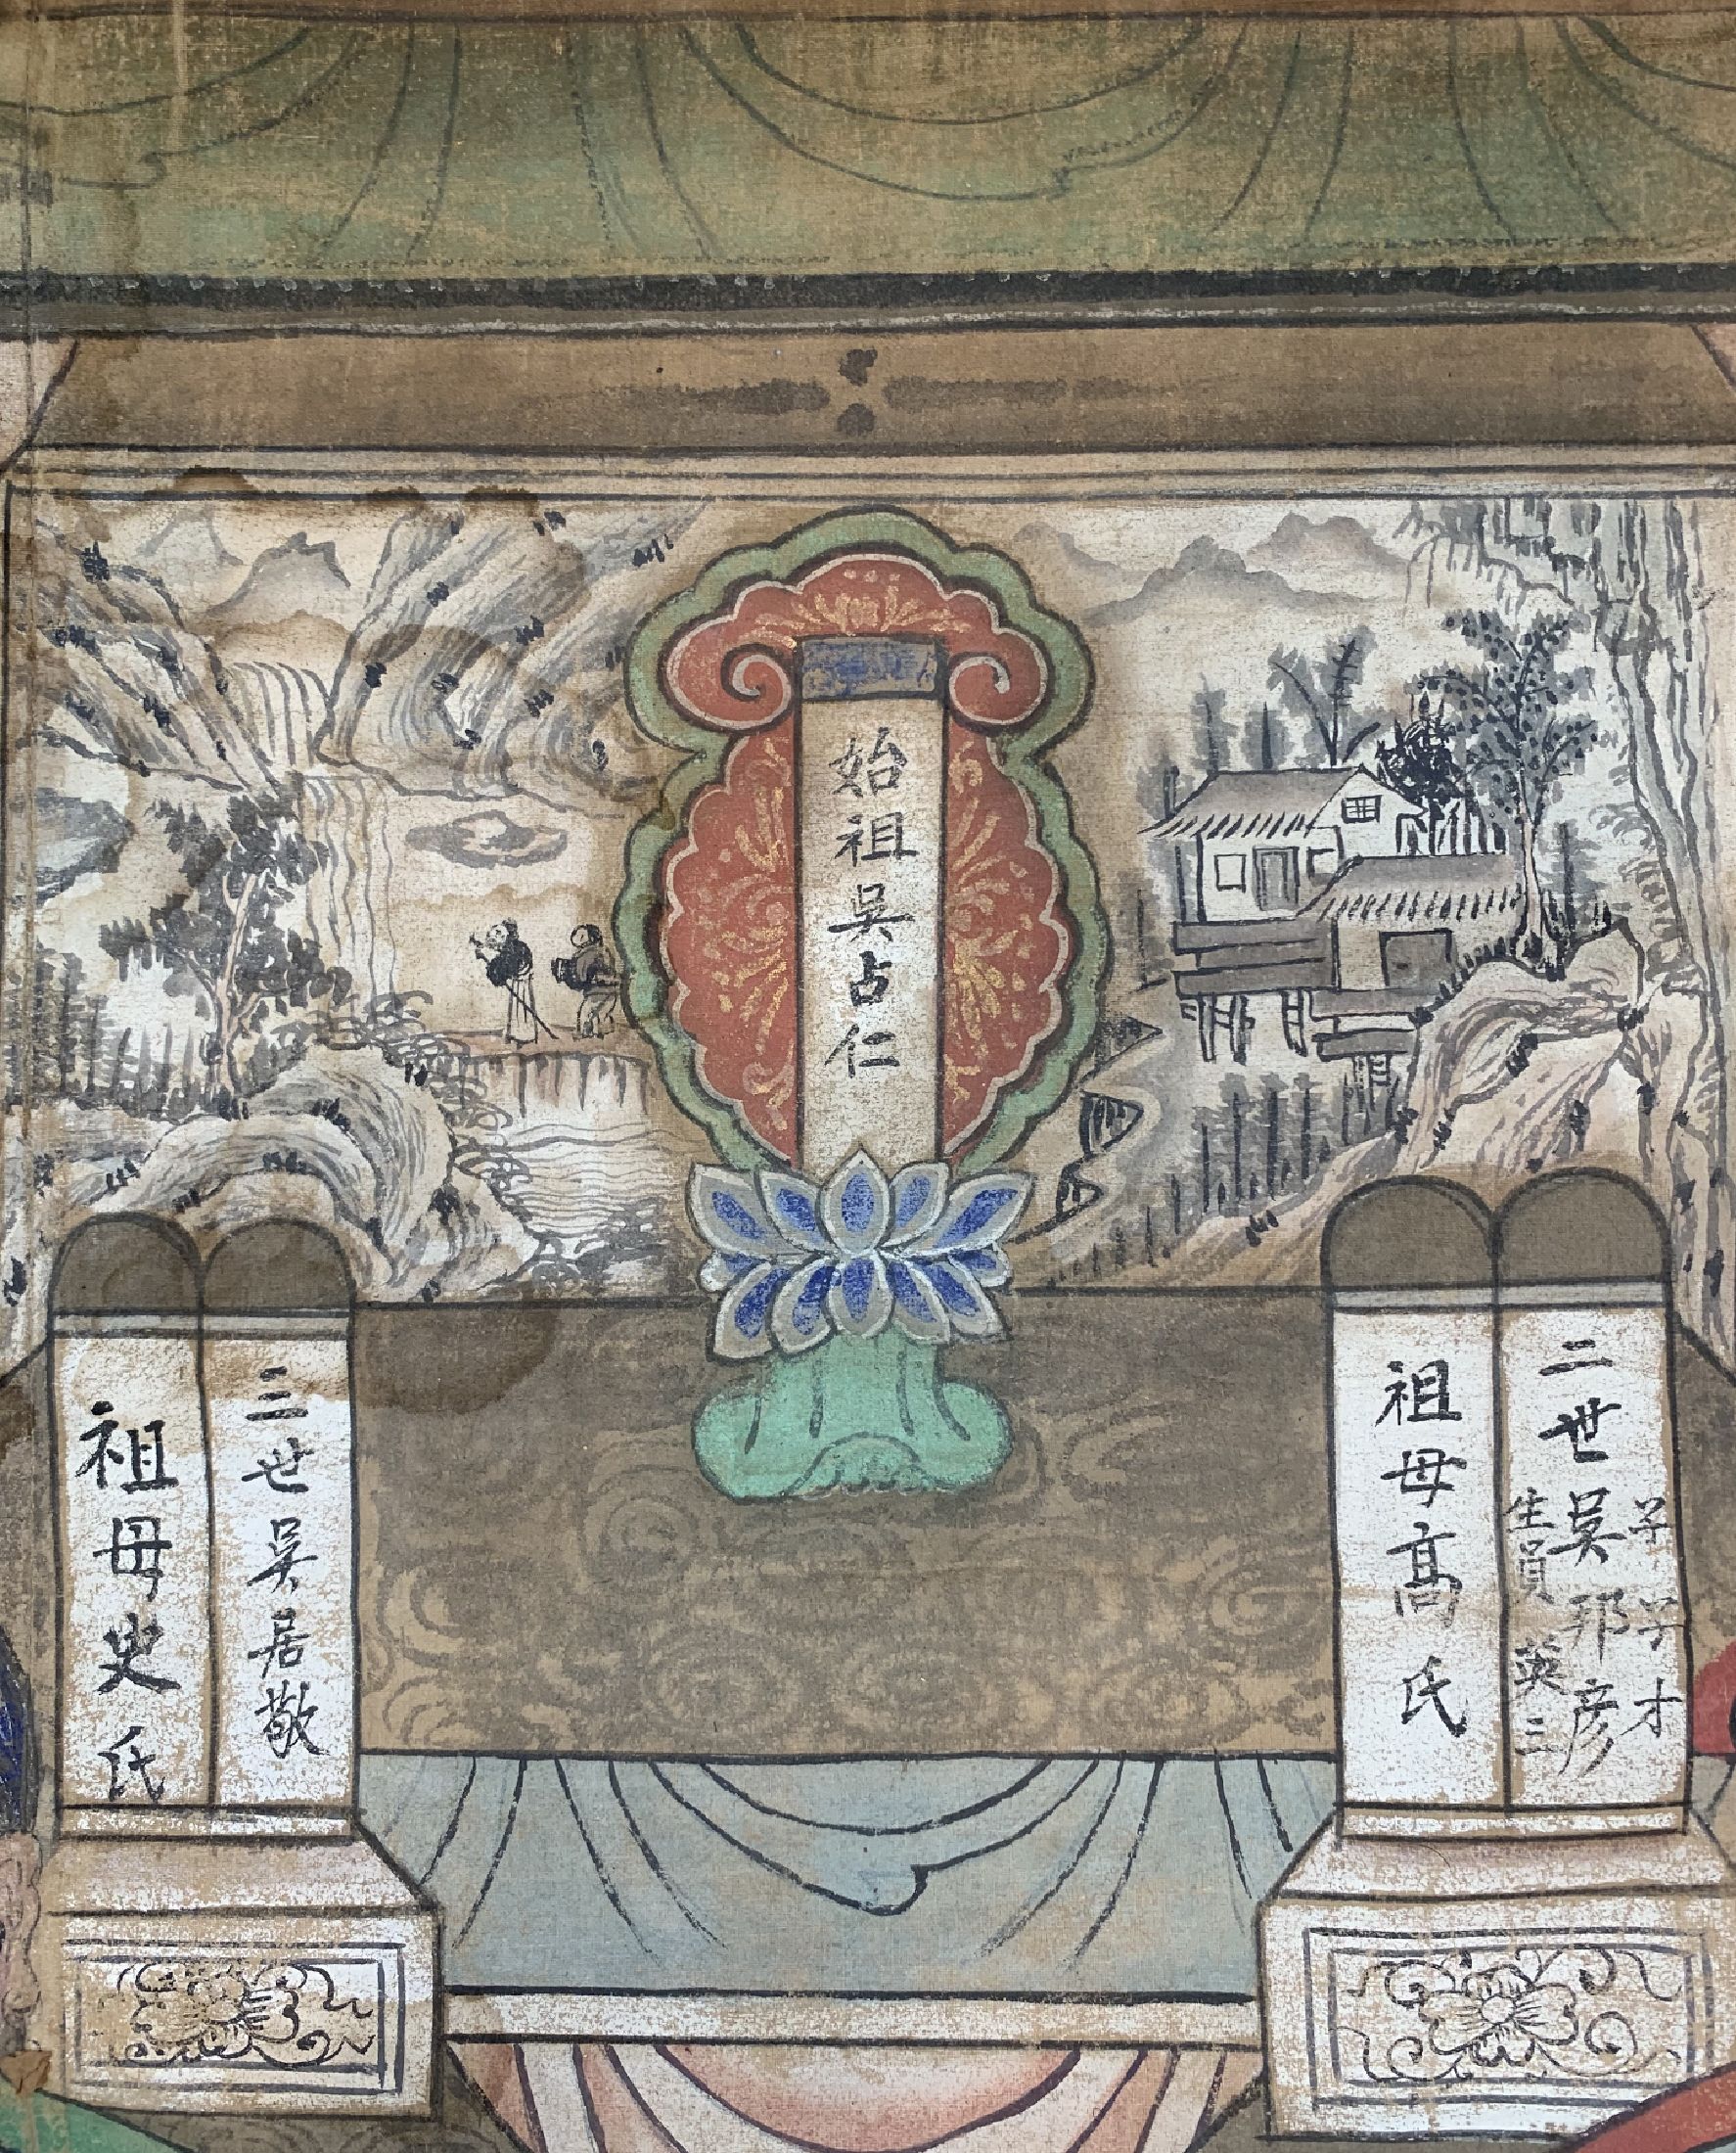 始祖吳占仁
二世吳邦彦
字子才
生員 英三
祖母高氏
三世吳居敬
祖母史氏